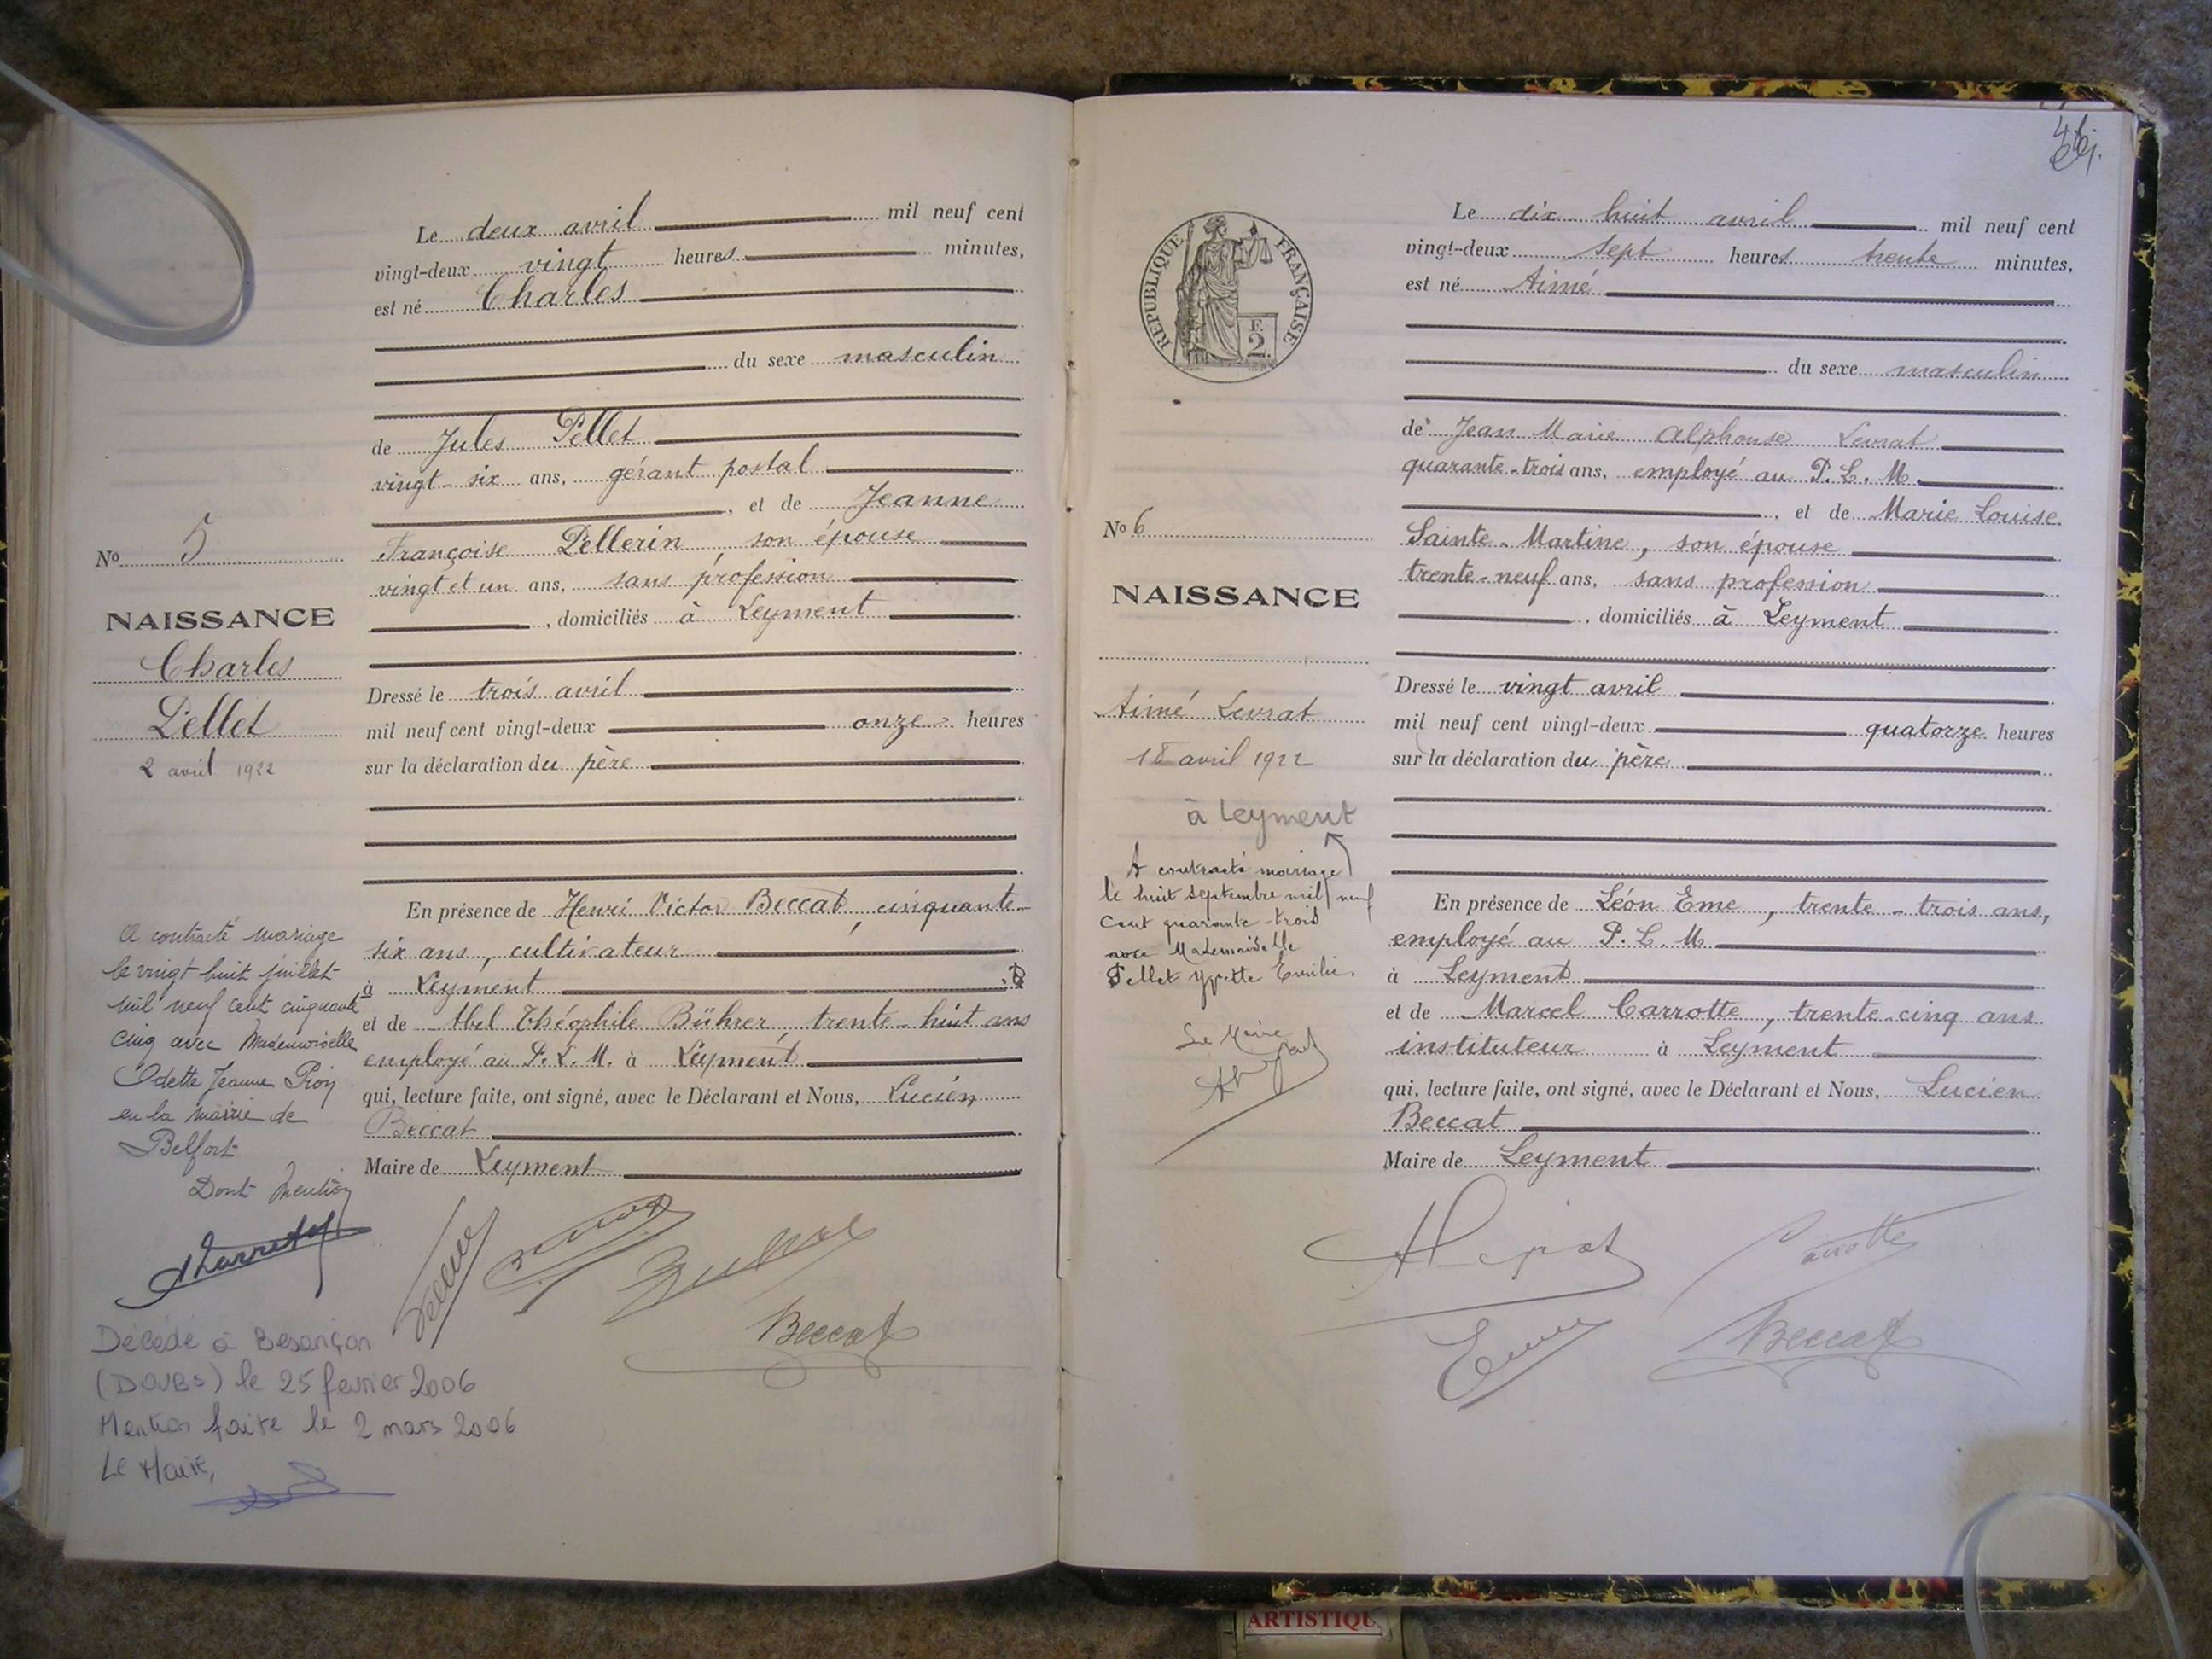 Le deux avril mil neuf cent
vingt-deux vingt heures minutes,
est né Charles
du sexe masculin
de Jules Pellet
vingt-six ans, gérant postal
, et de Jeanne
Françoise Pellerin, son épouse
vingt et un ans, sans profession
, domiciliés à Leyment
Dressé le trois avril
mil neuf cent vingt-deux onze heures
sur la déclaration du père
En présence de Henri Victor Beccat, cinquante-
six ans, cultivateur
à Leyment
et de Abel Théophile Bührer, trente-huit ans
employé au P. L. M. à Leyment
qui, lecture faite, ont signé, avec le Déclarant et Nous, Lucien
Beccat
Maire de Leyment
Beccat
No 5
NAISSANCE
Charles
Pellet
2 avril 1922
A contracté mariage
le vingt huit juillet
mil neuf cent cinquante
cinq avec Mademoiselle
Odette Jeanne
en la mairie de
Belfort
Dont Mention
Décédé à Besançon
(DOUBS) le 25 fevrier 2006
Mention faite le 2 mars 2006
Le Maire,
46
REPUBLIQUE FRANÇAISE
F.
2.
Le dix huit avril mil neuf cent
vingt-deux sept heures trente minutes,
est né Aimé
du sexe masculin
de Jean Marie Alphonse Levrat
quarante-trois ans, employé au P. L. M.
, et de Marie Louise
Sainte-Martine, son épouse
trente-neuf ans, sans profession
, domiciliés à Leyment
Dressé le vingt avril
mil neuf cent vingt-deux quatorze heures
sur la déclaration du père
En présence de Léon Eme, trente-trois ans,
employé au P. L. M.
à Leyment
et de Marcel Carrotte, trente-cinq ans
instituteur à Leyment
qui, lecture faite, ont signé, avec le Déclarant et Nous, Lucien
Beccat
Maire de Leyment
Carrotte
Eme
Beccat
No 6
NAISSANCE
Aimé Levrat
18 avril 1922
à Leyment
A contracté mariage
le huit septembre mil neuf
cent quarante-trois
avec Mademoiselle
Pellet Yvette Emilie.
Le Maire
ARTISTIQU